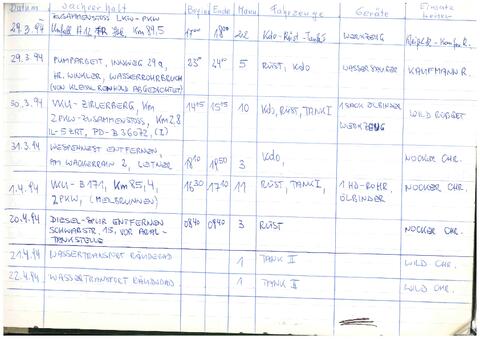 Datum Sachverhalt Beginn Ende Mann Fahrzeuge Geräte Einsatz
ZUSAMMENSTOSS LKW-PKW
29.3.94 Unfall A 12, Km 84,5 17°° 18°° 22 Kdo-Rüst-Tank I WERKZEUG
29.3.94 PUMPARBEIT, INNWEG 29a, 23°° 24°° 5 RÜST, Kdo WASSERSAUGER KAUFMANN R.
HR. WINKLER, WASSERROHRBRUCH
(VON KLEIN ABGEDICHTET)
30.3.94 VKU - ZIRLERBERG, Km 14¹⁵ 15¹⁵ 10 Kdo, RÜST, TANK I 1 SACK ÖLBINDER WILD ROBERT
2 PKW-ZUSAMMENSTOSS, KM 2,8 WERKZEUG
IL-5 ZRT, PD-B 36072, (I)
31.3.94 WESPENNEST ENTFERNEN, NOCKER CHR.
AM WACKERRAIN 2, LEITNER 18¹⁰ 18⁵⁰ 3 Kdo,
1.4.94 VKU - B 171, Km 85,4, 16³⁰ 17¹⁰ 11 RÜST, TANK I, 1 HD-ROHR, NOCKER CHR.
2 PKW, (MEILBRUNNEN) ÖLBINDER
20.4.94 DIESEL-SPUR ENTFERNEN 08⁴⁰ 09⁴⁰ 3 RÜST NOCKER CHR.
SCHWARSTR. 15, VOR ARAL-
TANKSTELLE
21.4.94 WASSERTRANSPORT 1 TANK II WILD CHR.
22.4.94 WASSERTRANSPORT 1 TANK II WILD CHR.